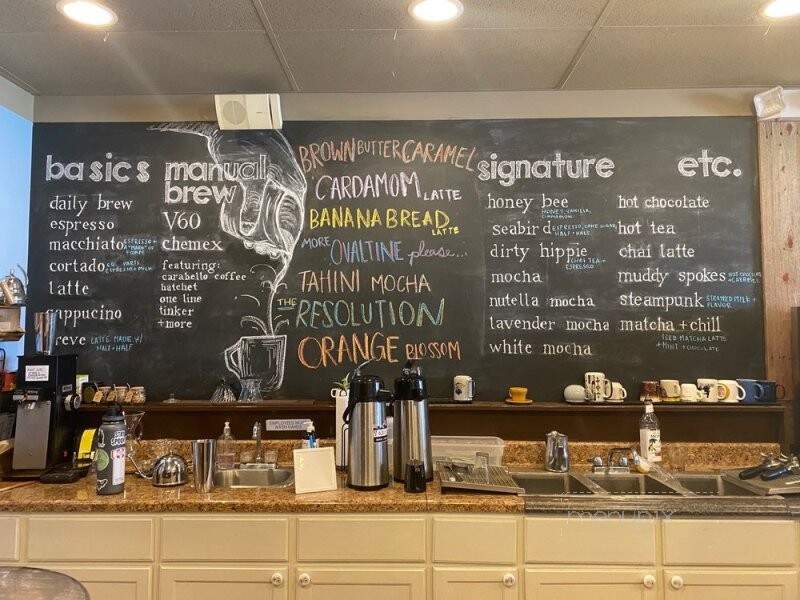 basics
daily brew
espresso
macchiato ESPRESSO +
cortado
latte
cappucino
breve LATTE MADE W/
HALF+HALF
manual
brew
V60
chemex
featuring:
carabello coffee
hatchet
one line
tinker
+more
BROWN BUTTER CARAMEL
CARDAMOM LATTE
BANANA BREAD
LATTE
MORE OVALTINE please...
TAHINI MOCHA
THE RESOLUTION
ORANGE BLOSSOM
signature
honey bee
HONEY, VANILLA,
CINNAMON
seabird
HALF+HALF
dirty hippie
CHAI TEA +
ESPRESSO
mocha
nutella mocha
lavender mocha
white mocha
etc.
hot chocolate
hot tea
chai latte
muddy spokes HOT CHOCOLATE
+ CARAMEL
steampunk STEAMED MILK +
FLAVOR
matcha + chill
ICED MATCHA LATTE
+ MINT + CHOCOLATE
EMPLOYEES
WASH HANDS